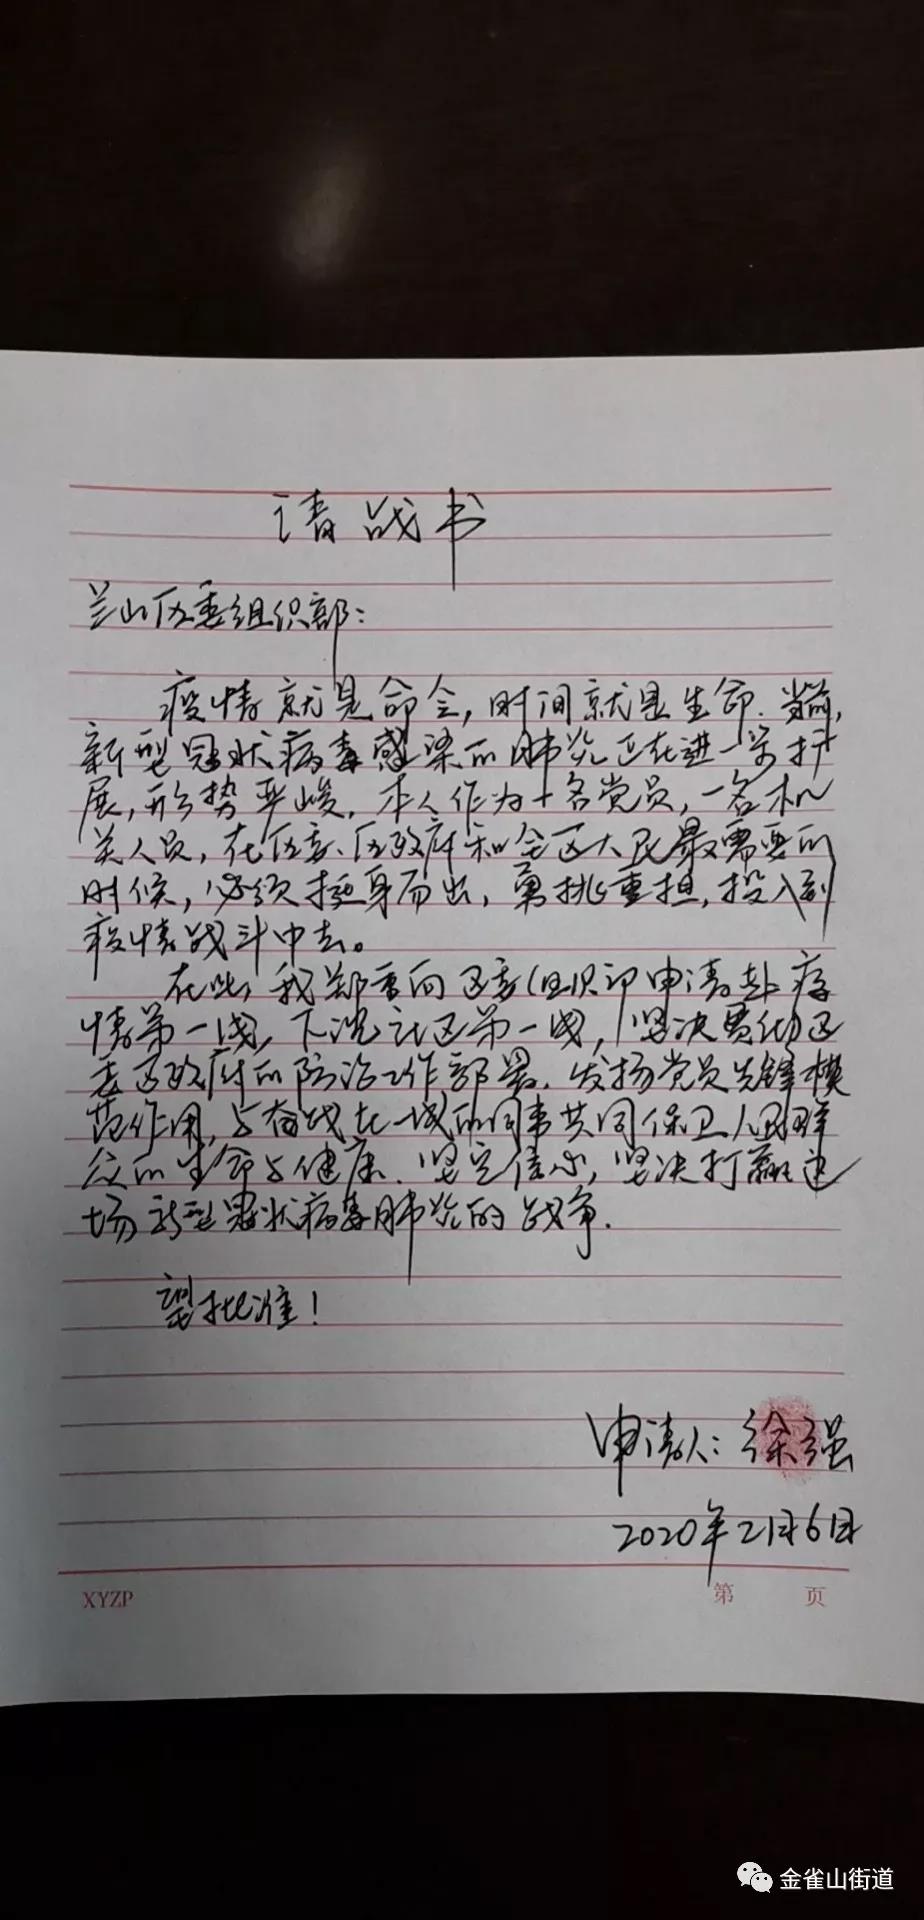 请战书
兰山区委组织部：
疫情就是命令，时间就是生命.当前，
新型冠状病毒感染的肺炎正在进一步扩
展，形势严峻，本人作为一名党员，一名机
关人员，在区委、区政府和全区人民最需要的
时候，必须挺身而出，勇挑重担，投入到
疫情战斗中去。
在此，我郑重向区委组织部申请赴疫
情第一线，下沉社区第一线，坚决贯彻区
委区政府的防治工作部署.发扬党员先锋模
范作用，与奋战在一线的同事共同保卫人民群
众的生命与健康.坚定信心，坚决打赢这
场新型冠状病毒肺炎的战争.
望批准！
申请人：徐强
2020年2月6日
XYZP 第 页
金雀山街道